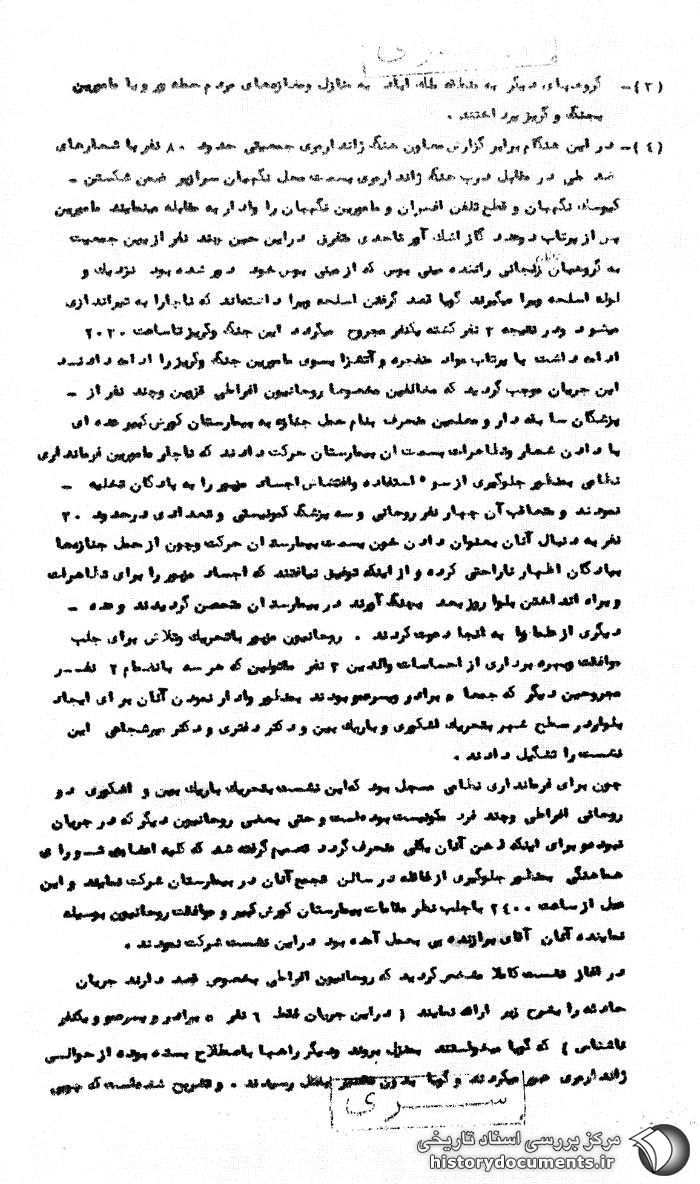 سری
(۳)- گروههای دیگر به منطقه ملک آباد به منازل ومغازه‌های مردم حمله ور و با مامورین
بجنگ و گریز پرداختند .
(٤)- در این هنگام برابر گزارش معاون هنگ ژاندارمری جمعیتی حدود ۸۰ نفر با شعارهای
ضد ملی در مقابل درب هنگ ژاندارمری بسمت محل نگهبان سرازیر ضمن شکستن -
کیوسک نگهبان و قطع تلفن افسران و مامورین نگهبان را وادار به مقابله مینمایند مامورین
پس از پرتاب وحدد گاز اشک آور تاحدی متفرق دراین حین چند نفر از بین جمعیت
به گروهبان زنجانی راننده مینی بوس که از مینی بوس خود دور شده بود نزدیک و
لوله اسلحه ویرا میگیرند گویا قصد گرفتن اسلحه ویرا داشته‌اند که ناچارا به تیراندازی
میشود ودر نتیجه ۳ نفر کشته یکنفر مجروح میگردد این جنگ وگریز تاساعت ۲۰۳۰
ادامه داشت با پرتاب مواد منفجره و آتشزا بسوی مامورین جنگ وگریز را ادامه دادند
این جریان موجب گردید که مخالفین مخصوصا روحانیون افراطی قزوین وچند نفر از -
پزشکان سابقه دار و معلمین منحرف بنام حمل جنازه به بیمارستان کورش کبیر عده ای
با دادن شعار وتظاهرات بسمت ان بیمارستان حرکت دادند که ناچار مامورین فرمانداری
نظامی بمنظور جلوگیری از سوء استفاده واغتشاش اجساد مزبور را به پادگان تخلیه -
نمودند و متعاقب آن چهار نفر روحانی و سه پزشک کمونیستی و تعدادی درحدود ۳۰
نفر به دنبال آنان بعنوان دادن خون بسمت بیمارستان حرکت وچون از حمل جنازه‌ها
بپادگان اظهار ناراحتی کرده و از اینکه توفیق نیافتند که اجساد مزبور را برای تظاهرات
و براه انداختن بلوا روز بعد بچنگ آورند در بیمارستان متحصن گردیدند و عده -
دیگری از علما را به انجا دعوت کردند . روحانیون مزبور باتحریک وتلاش برای جلب
موافقت وبهره برداری از احساسات والدین ۳ نفر مقتولین که هر سه بانضمام ۲ نفر
مجروحین دیگر که جمعا ٥ برادر وپسرعمو بودند بمنظور وادار نمودن آنان برای ایجاد
بلوا در سطح شهر بتحریک اشکوری و باریک بین و دکتر دفتری و دکتر میرشجاعی این
نشست را تشکیل دادند .
چون برای فرمانداری نظامی مسجل بود که این نشست بتحریک باریک بین و اشکوری دو
روحانی افراطی وچند فرد کمونیست بوده‌است و حتی بعضی روحانیون دیگر که در جریان
نبودند برای اینکه ذهن آنان بکلی منحرف گردد تصمیم گرفته شد که کلیه اعضای شورای
هماهنگی بمنظور جلوگیری از غائله در سالن تجمع آنان در بیمارستان شرکت نمایند و این
عمل از ساعت ۲٤۰۰ باجلب نظر مقامات بیمارستان کورش کبیر و موافقت روحانیون بوسیله
نماینده آنان آقای برازنده پی بعمل آمده بود دراین نشست شرکت نمودند .
در آغاز نشست کاملا مشخص گردید که روحانیون افراطی بخصوص قصد دارند جریان
حادثه را بشرح زیر ارائه نمایند ( دراین جریان فقط ٦ نفر ٥ برادر و پسرعمو و یکنفر
ناشناس ) که گویا میخواستند بمنزل بروند ودیگر راهها باصطلاح بسته بوده از حوالی
ژاندارمری عبور میکردند و گویا بدون تقصیر بقتل رسیدند . و تشریح شده‌است که چوبی
سری
مرکز بررسی اسناد تاریخی
historydocuments.ir